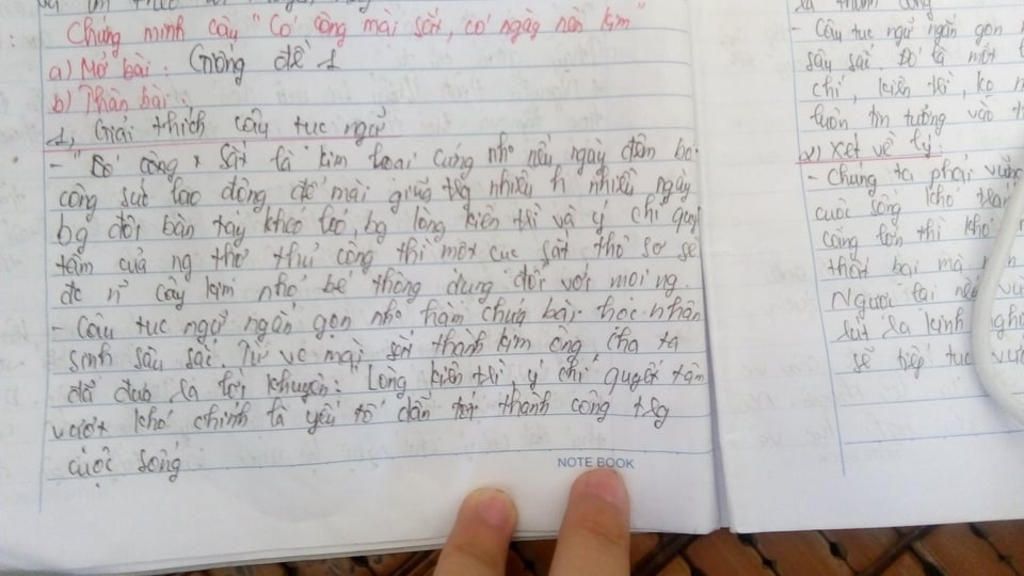 Chứng minh câu "Có công mài sắt, có ngày nên kim"
a) Mở bài: Giống đề 1
b) Thân bài:
1, Giải thích câu tục ngữ
- Sắt là kim loại cứng nếu ngày đêm bỏ
công sức lao động để mài giũa nhiều h nhiều ngày
bg đôi bàn tay khéo léo, bg lòng kiên trì và ý chí quyết
tâm của ng thợ thủ công thì một cục sắt thô sơ sẽ
cây kim nhỏ bé thông dụng đối với mọi ng.
- Câu tục ngữ ngắn gọn hàm chứa bài học nhân
sinh sâu sắc. Từ mài sắt thành kim ông cha ta
đã đưa ra lời khuyên: "Lòng kiên trì, ý chí quyết tâm
vượt khó chính là yếu tố dẫn tới thành công
cuộc sống
NOTE BOOK
- Câu tục ngữ ngắn gọn
sâu sắc. Đó là một
chí, kiên trì, ko
luôn tin tưởng vào
2) Xét về lý:
- Chúng ta phải
cuộc sống khó
càng lớn thì khó
thất bại mà
Ngược lại nếu
rút ra kinh
sẽ tiếp tục